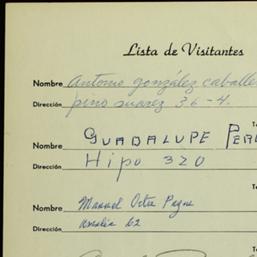 Lista de Visitantes
Nombre Antonio gonzález caballe
Dirección pino suarez 36-4. Te
Nombre GUADALUPE PER
Dirección Hipo 320 Te
Nombre Manuel Ortiz Payne
Dirección Amalia 62 Te